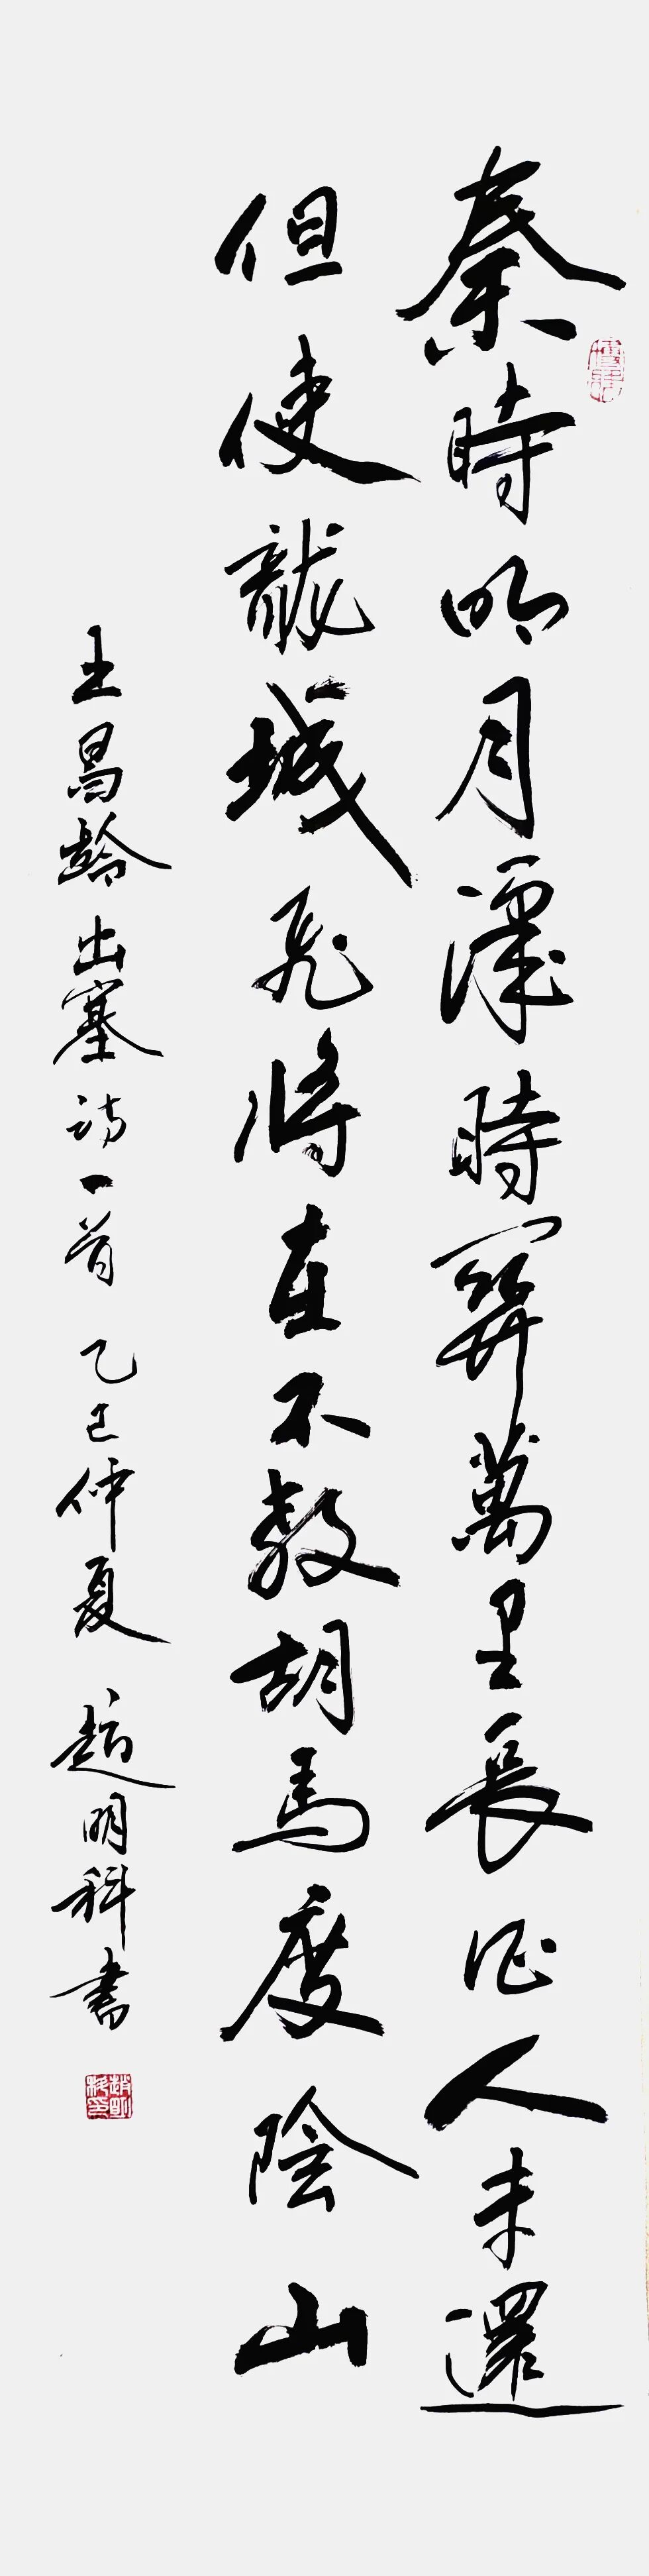 秦時明月漢時關萬里長征人未還
但使龍城飛將在不教胡馬度陰山
王昌齡出塞詩一首 乙巳仲夏 趙明科書
趙明科印